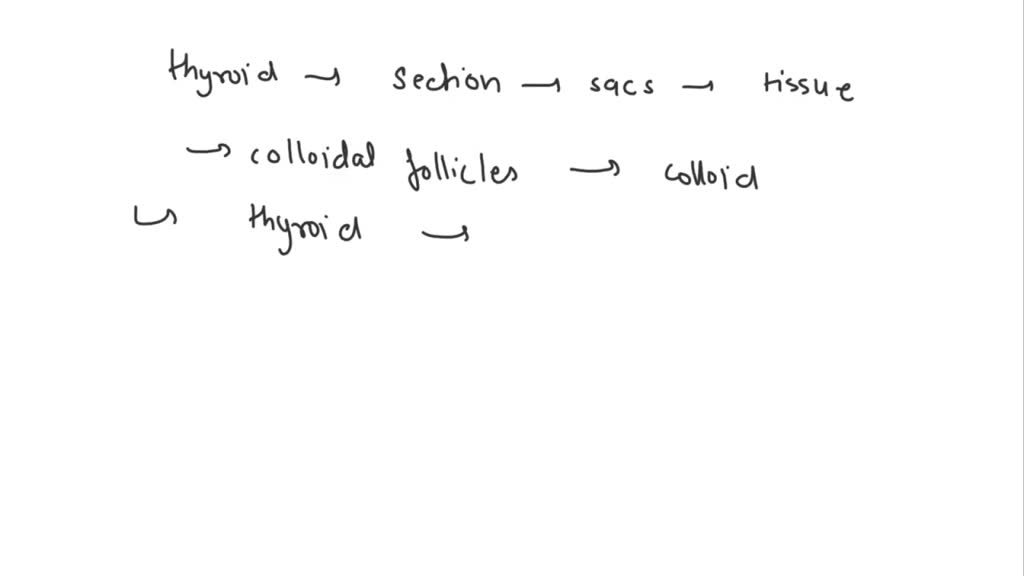 thyroid → section → sacs → tissue
→ colloidal follicles → colloid
↪ thyroid →